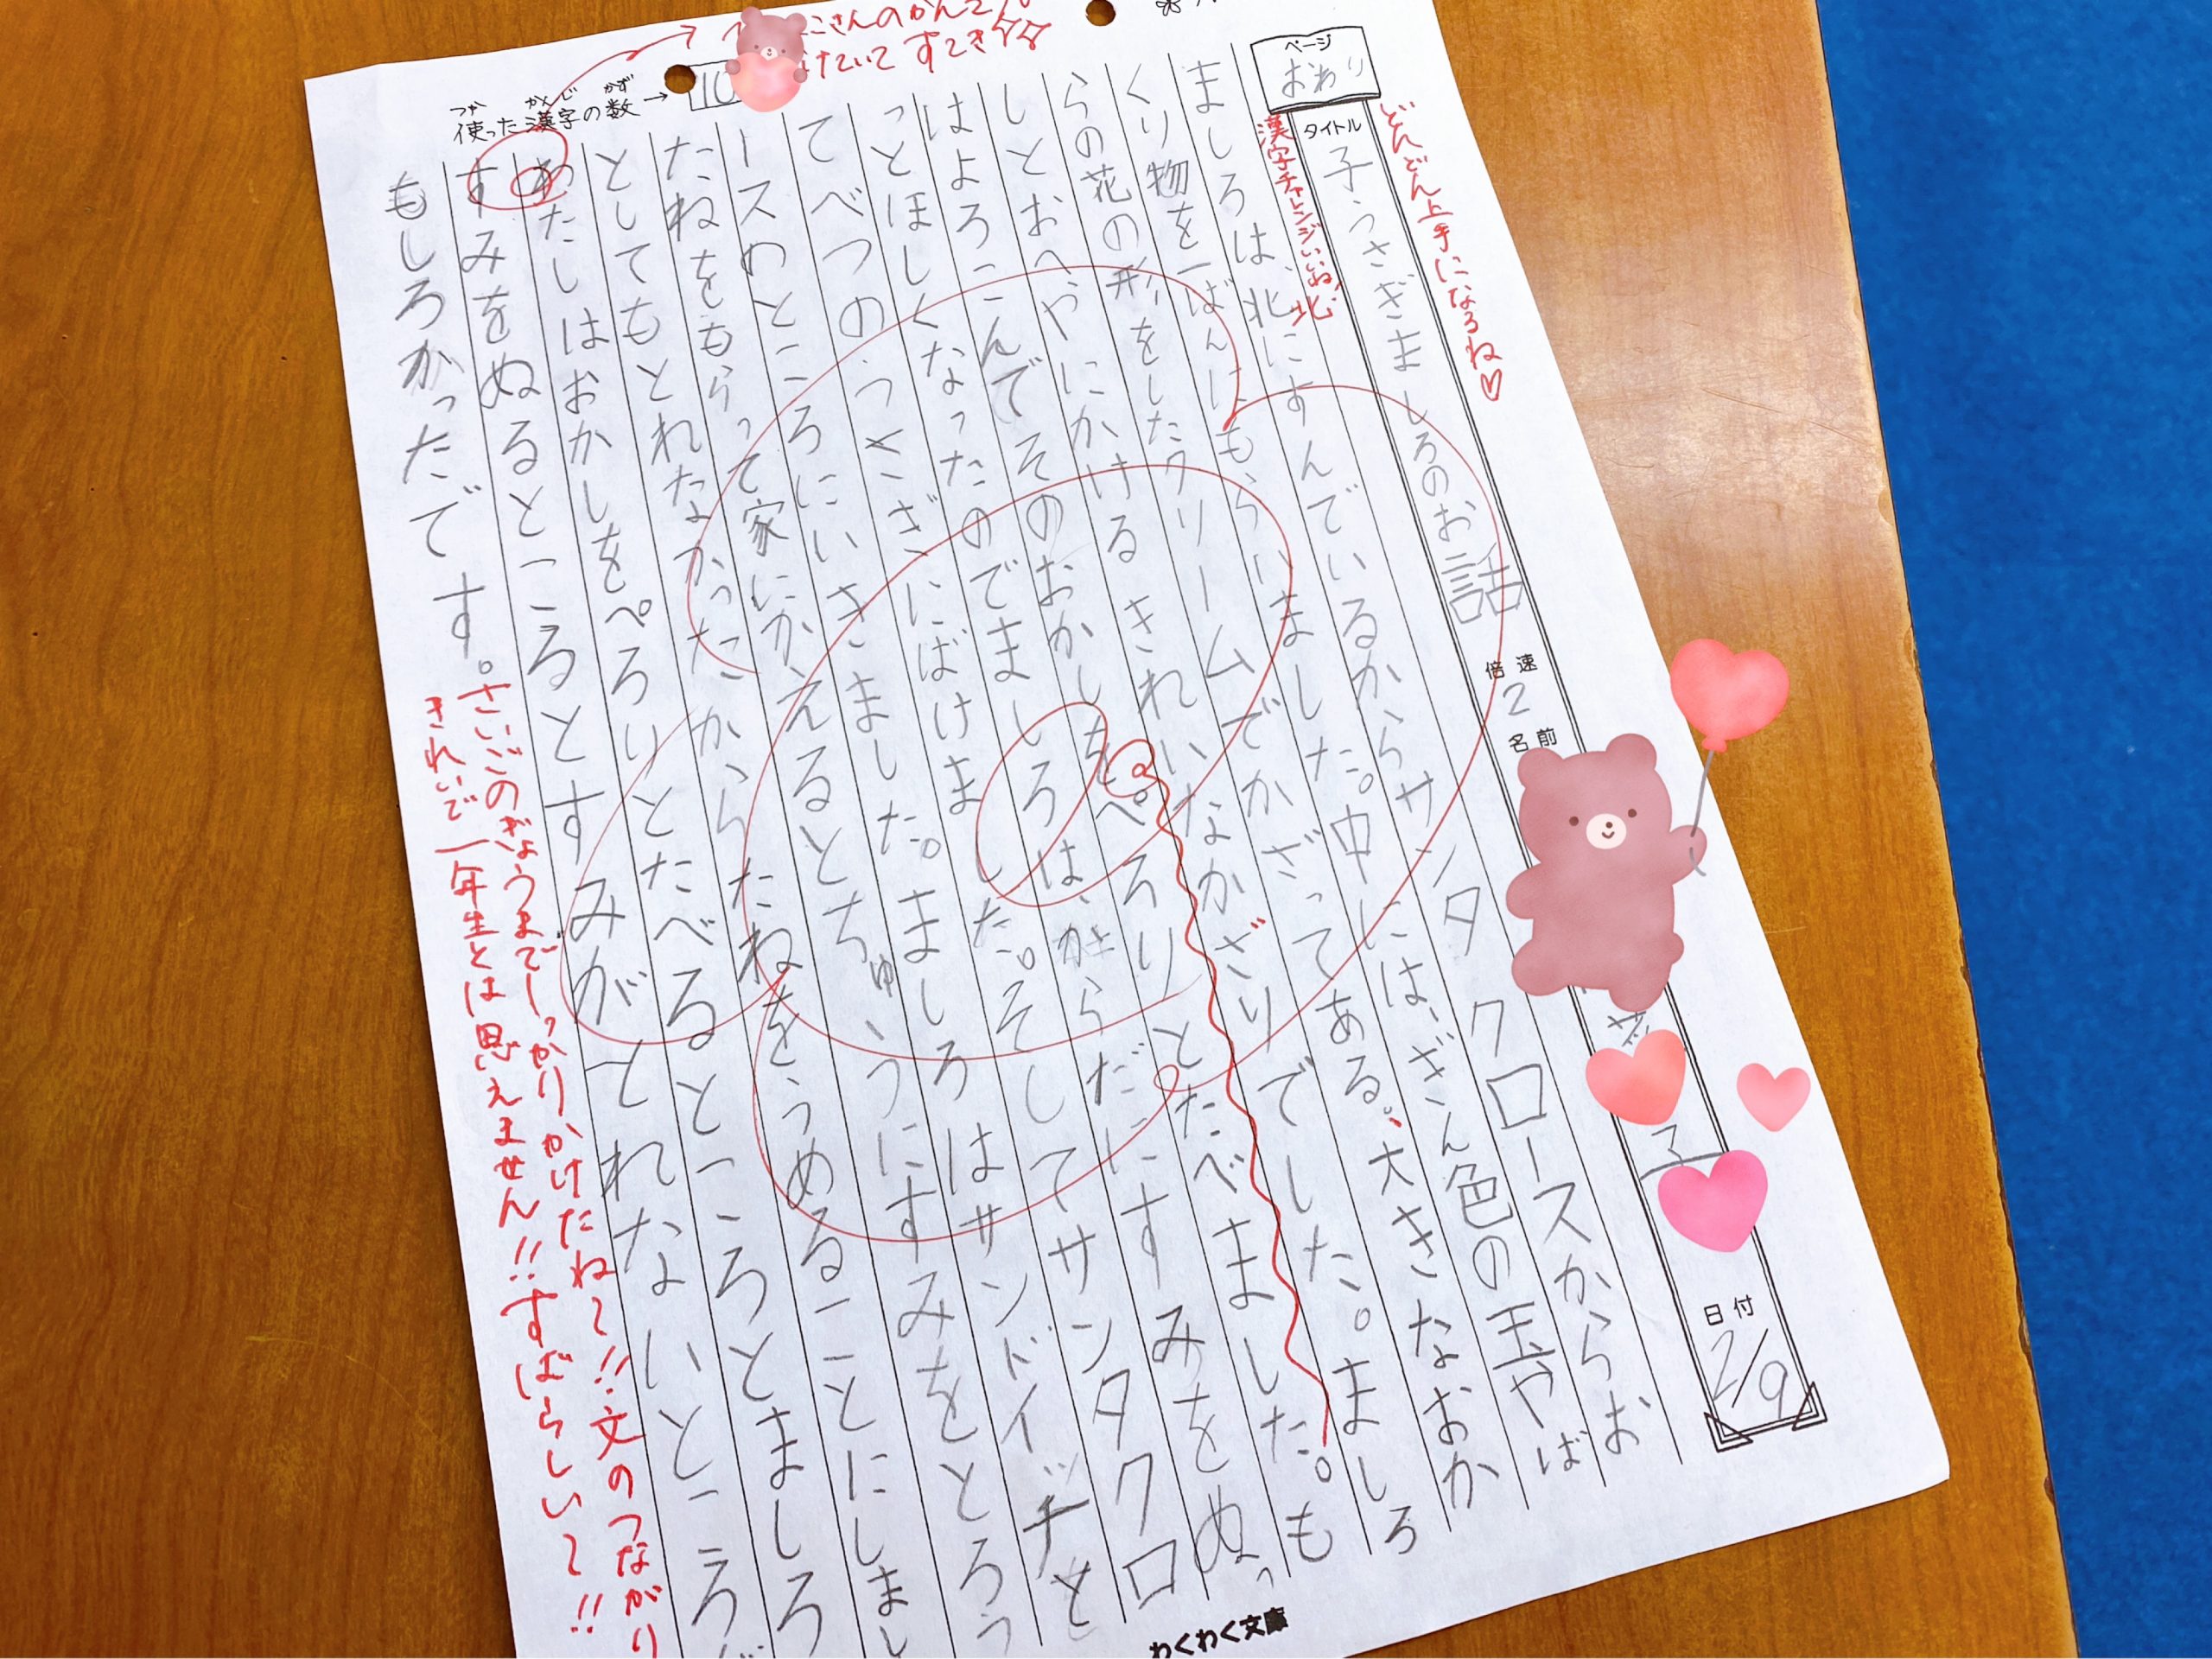 使った漢字の数→
つか かんじ かず
10
すてき
ページ
おわり
タイトル
子うさぎましろのお話
倍速
2
名前
日付
2/9
どんどん上手になるね♡
漢字チャレンジいいね!北
ましろは、北にすんでいるからサンタクロースからお
くり物を一ばんにもらいました。中には、ぎん色の玉やば
らの花の形をしたクリームでかざってある。大きなおか
しとおへやにかけるきれいなかざりでした。ましろ
はよろこんでそのおかしをぺろりとたべました。も
っとほしくなったのでましろは、からだにすみをぬっ
てべつのうさぎにばけました。そしてサンタクロ
ースのところにいきました。ましろはサンドイッチと
たねをもらって家にかえるとちゅうにすみをとろう
としてもとれなかったからたねをうめることにしまし
わたしはおかしをぺろりとたべるところとましろ
すみをぬるところとすみがとれないところが
もしろかったです。
さいごのぎょうまでしっかりかけたね~!!文のつながり
きれいで一年生とは思えません!!すばらしい~!!
わくわく文庫